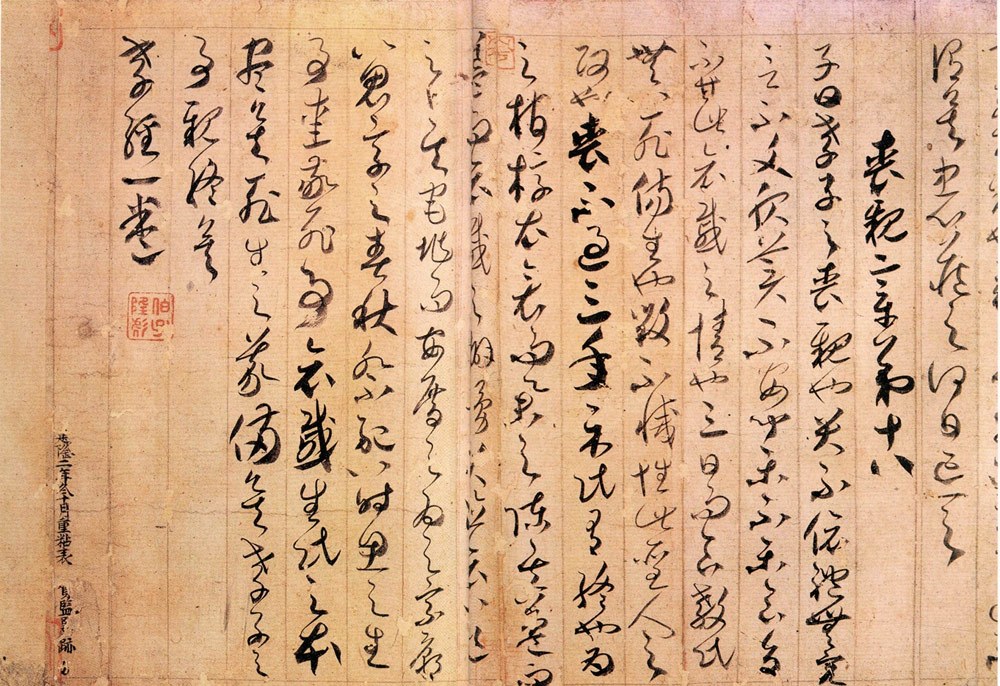 謂矣中心藏之何日忘之
喪親章第十八
子曰孝子之喪親也哭不偯禮無容
言不文服美不安聞樂不樂食旨
不甘此哀戚之情也三日而食教民
無以死傷生也毀不滅性此聖人之
政也喪不過三年示民有終也為
之棺椁衣衾而舉之陳其簠簋而
哀戚之擗踊哭泣哀以送
之卜其宅兆而安厝之為之宗廟
以鬼享之春秋祭祀以時思之生
事愛敬死事哀戚生民之本
盡矣死生之義備矣孝子之
事親終矣
孝經一卷
建隆二年冬十月重粘表 賀監墨跡